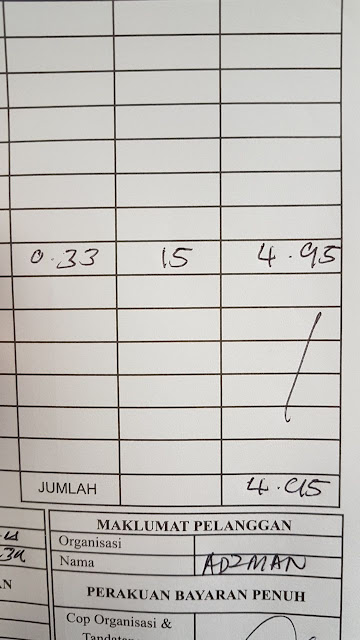 0.33 15 4.95
JUMLAH 4.95
MAKLUMAT PELANGGAN
Organisasi
Nama ADZMAN
PERAKUAN BAYARAN PENUH
Cop Organisasi &